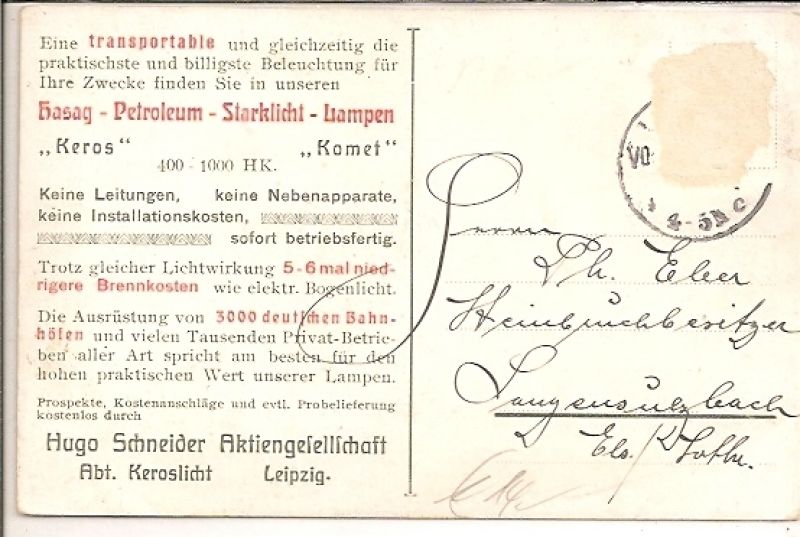 Eine transportable und gleichzeitig die
praktischste und billigste Beleuchtung für
Ihre Zwecke finden Sie in unseren
Hasag - Petroleum - Starklicht - Lampen
„Keros" „Komet"
400 - 1000 HK.
Keine Leitungen, keine Nebenapparate,
keine Installationskosten,
sofort betriebsfertig.
Trotz gleicher Lichtwirkung 5-6 mal nied-
rigere Brennkosten wie elektr. Bogenlicht.
Die Ausrüstung von 3000 deutschen Bahn-
höfen und vielen Tausenden Privat-Betrie-
ben aller Art spricht am besten für den
hohen praktischen Wert unserer Lampen.
Prospekte, Kostenanschläge und evtl. Probelieferung
kostenlos durch
Hugo Schneider Aktiengesellschaft
Abt. Keroslicht Leipzig.
VO
4-5N c
Herrn
Ph. Eber
Steinbruchbesitzer
Langensulzbach
Els./Lothr.